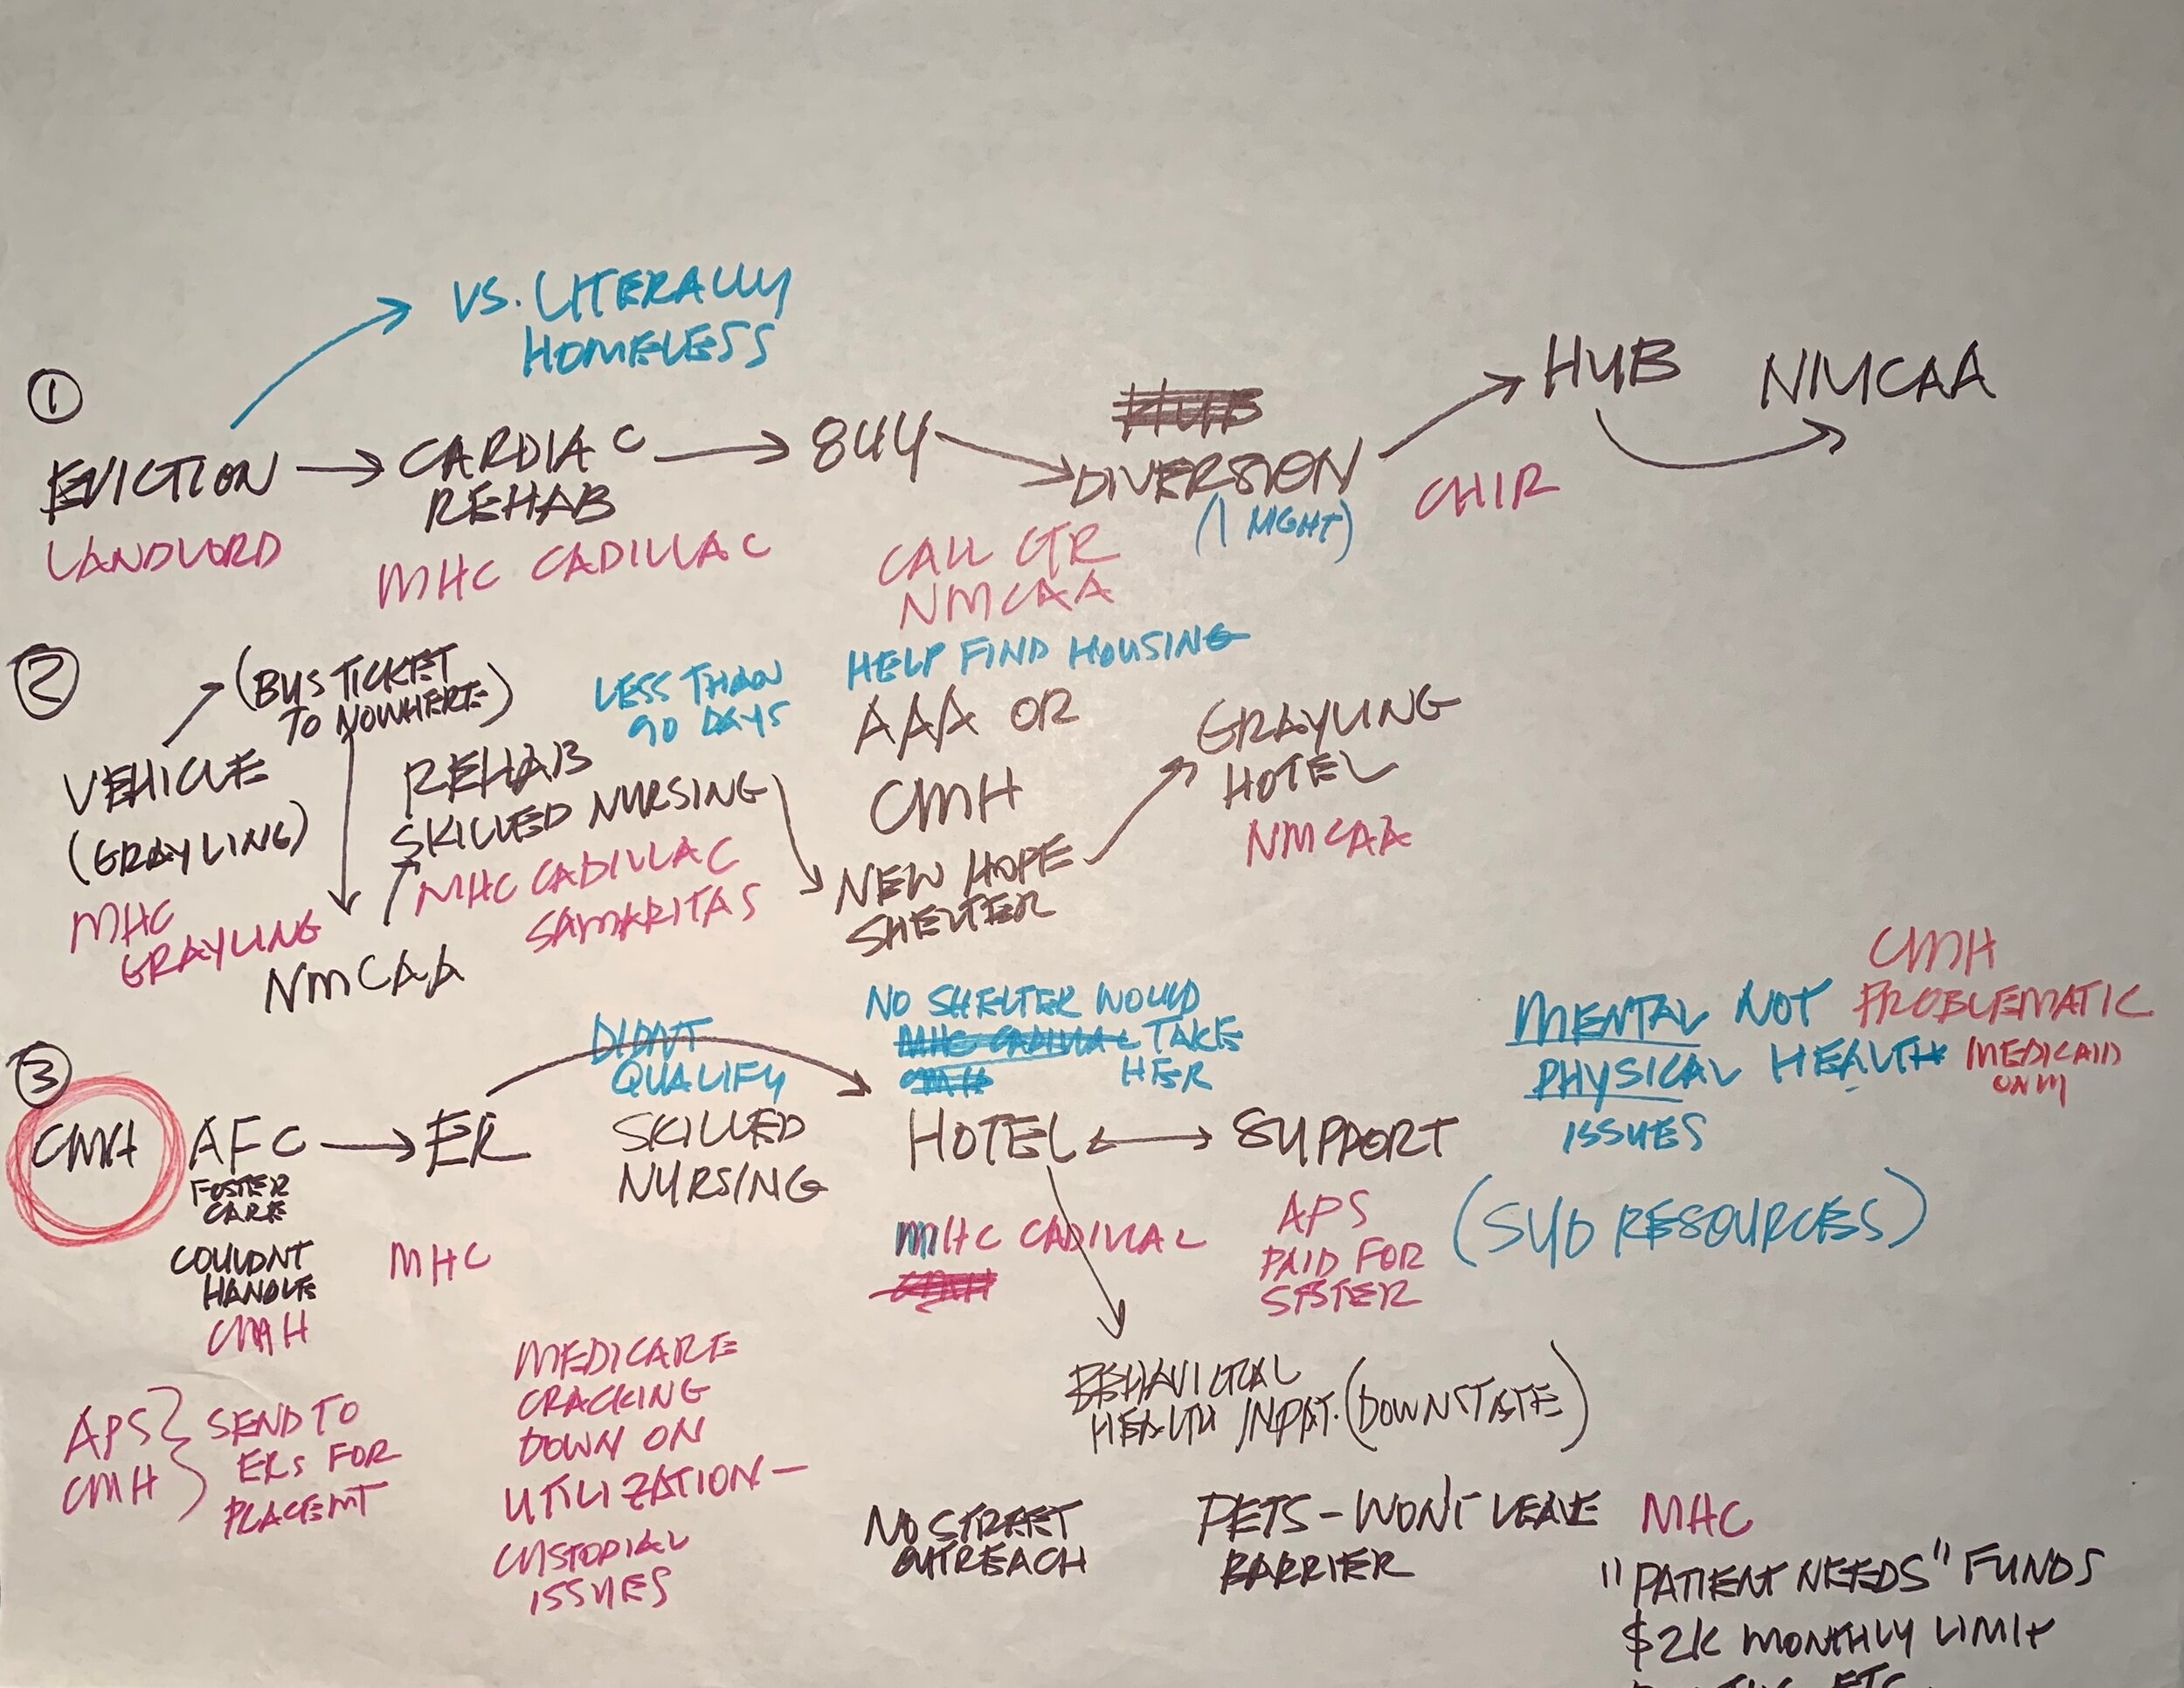 VS. LITERALLY
HOMELESS
1
EVICTION
LANDLORD
CARDIAC
REHAB
MHC CADILLAC
844
CALL CTR
NMCAA
HUB
DIVERSION
(1 NIGHT)
CHIR
HUB
NMCAA
2
(BUS TICKET
TO NOWHERE)
VEHICLE
(GRAYLING)
MHC
GRAYLING
NMCAA
LESS THAN
90 DAYS
REHAB
SKILLED NURSING
MHC CADILLAC
SAMARITAS
HELP FIND HOUSING
AAA OR
CMH
NEW HOPE
SHELTER
GRAYLING
HOTEL
NMCAA
3
CMH
AFC
FOSTER
CARE
COULDNT
HANDLE
CMH
ER
MHC
DIDN'T
QUALIFY
SKILLED
NURSING
NO SHELTER WOULD
MHC CADILLAC TAKE
CMH HER
HOTEL
MHC CADILLAC
CMH
SUPPORT
APS
PAID FOR
SISTER
MENTAL NOT
PHYSICAL HEALTH
ISSUES
CMH
PROBLEMATIC
MEDICAID
ONLY
(SUD RESOURCES)
APS
CMH
SEND TO
ERS FOR
PLACEMT
MEDICARE
CRACKING
DOWN ON
UTILIZATION—
CUSTODIAL
ISSUES
BEHAVIORAL
HEALTH INPAT. (DOWNSTATE)
NO STREET
OUTREACH
PETS - WON'T LEAVE
BARRIER
MHC
"PATIENT NEEDS" FUNDS
$2K MONTHLY LIMIT
ETC.